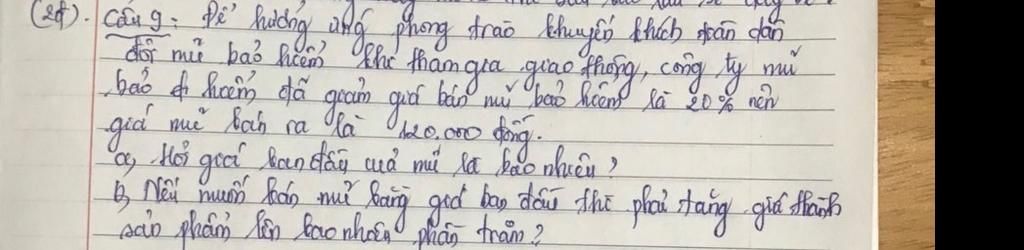 (2đ). Câu 9: Để hưởng ứng phong trào khuyến khích toàn dân
đội mũ bảo hiểm khi tham gia giao thông, công ty mũ
bảo hiểm đã giảm giá bán mũ bảo hiểm là 20% nên
giá mũ bán ra là 120.000 đồng.
a, Hỏi giá ban đầu của mũ là bao nhiêu?
b, Nếu muốn bán mũ bằng giá ban đầu thì phải tăng giá thành
sản phẩm lên bao nhiêu phần trăm?